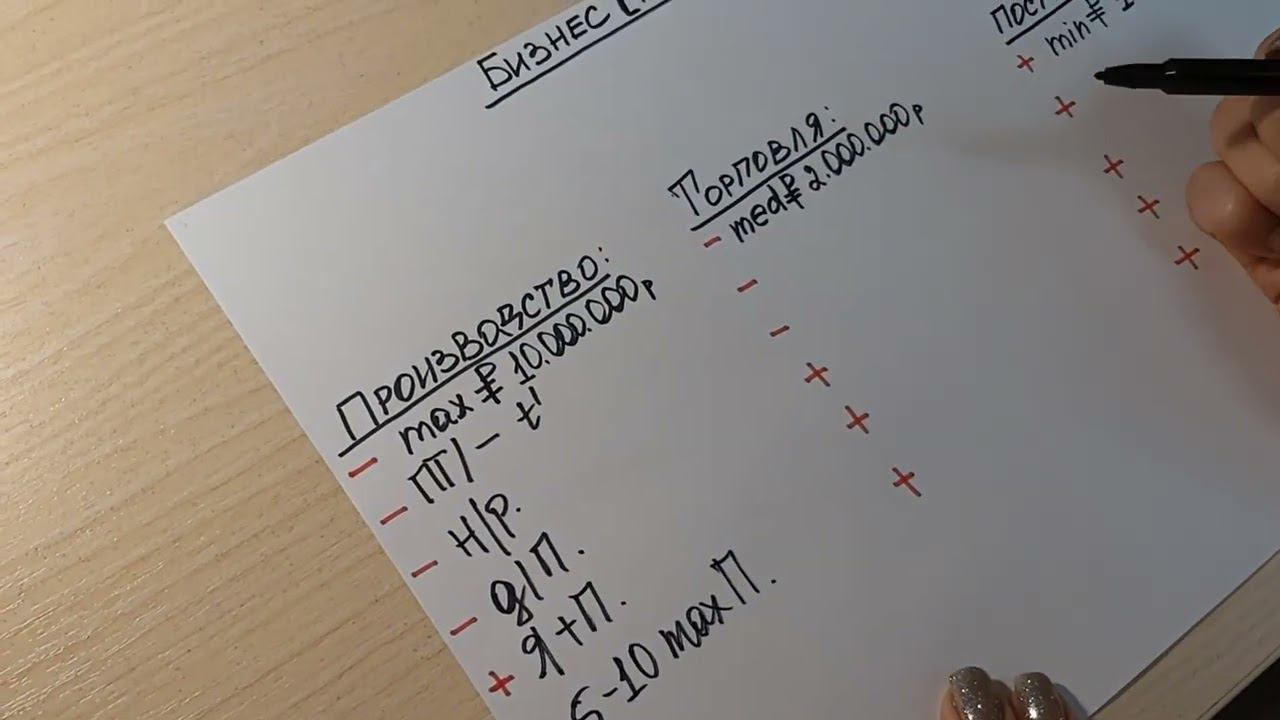 БИЗНЕС
ПРОИЗВОДСТВО:
- max ₽ 10.000.000р
- ПП/ - t'
- Н/р.
- д/П.
+ Я+П.
5-10 max П.
ТОРГОВЛЯ:
- med ₽ 2.000.000р
-
-
+
+
+
+ min ₽
+
+
+
+